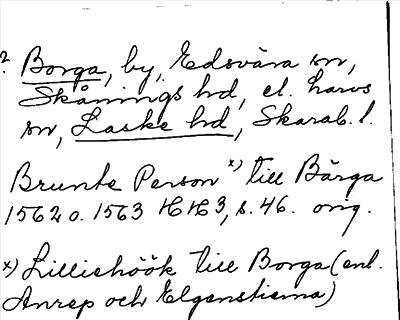 2. Borga, by, Edsvära sn,
Skånings hd, el. Larvs
sn, Laske hd, Skarab. l.
Brunte Person x) till Bärga
1562 o. 1563 HH3, s. 46. orig.
x) Lilliehöök till Borga (enl.
Anrep och Elgenstierna)